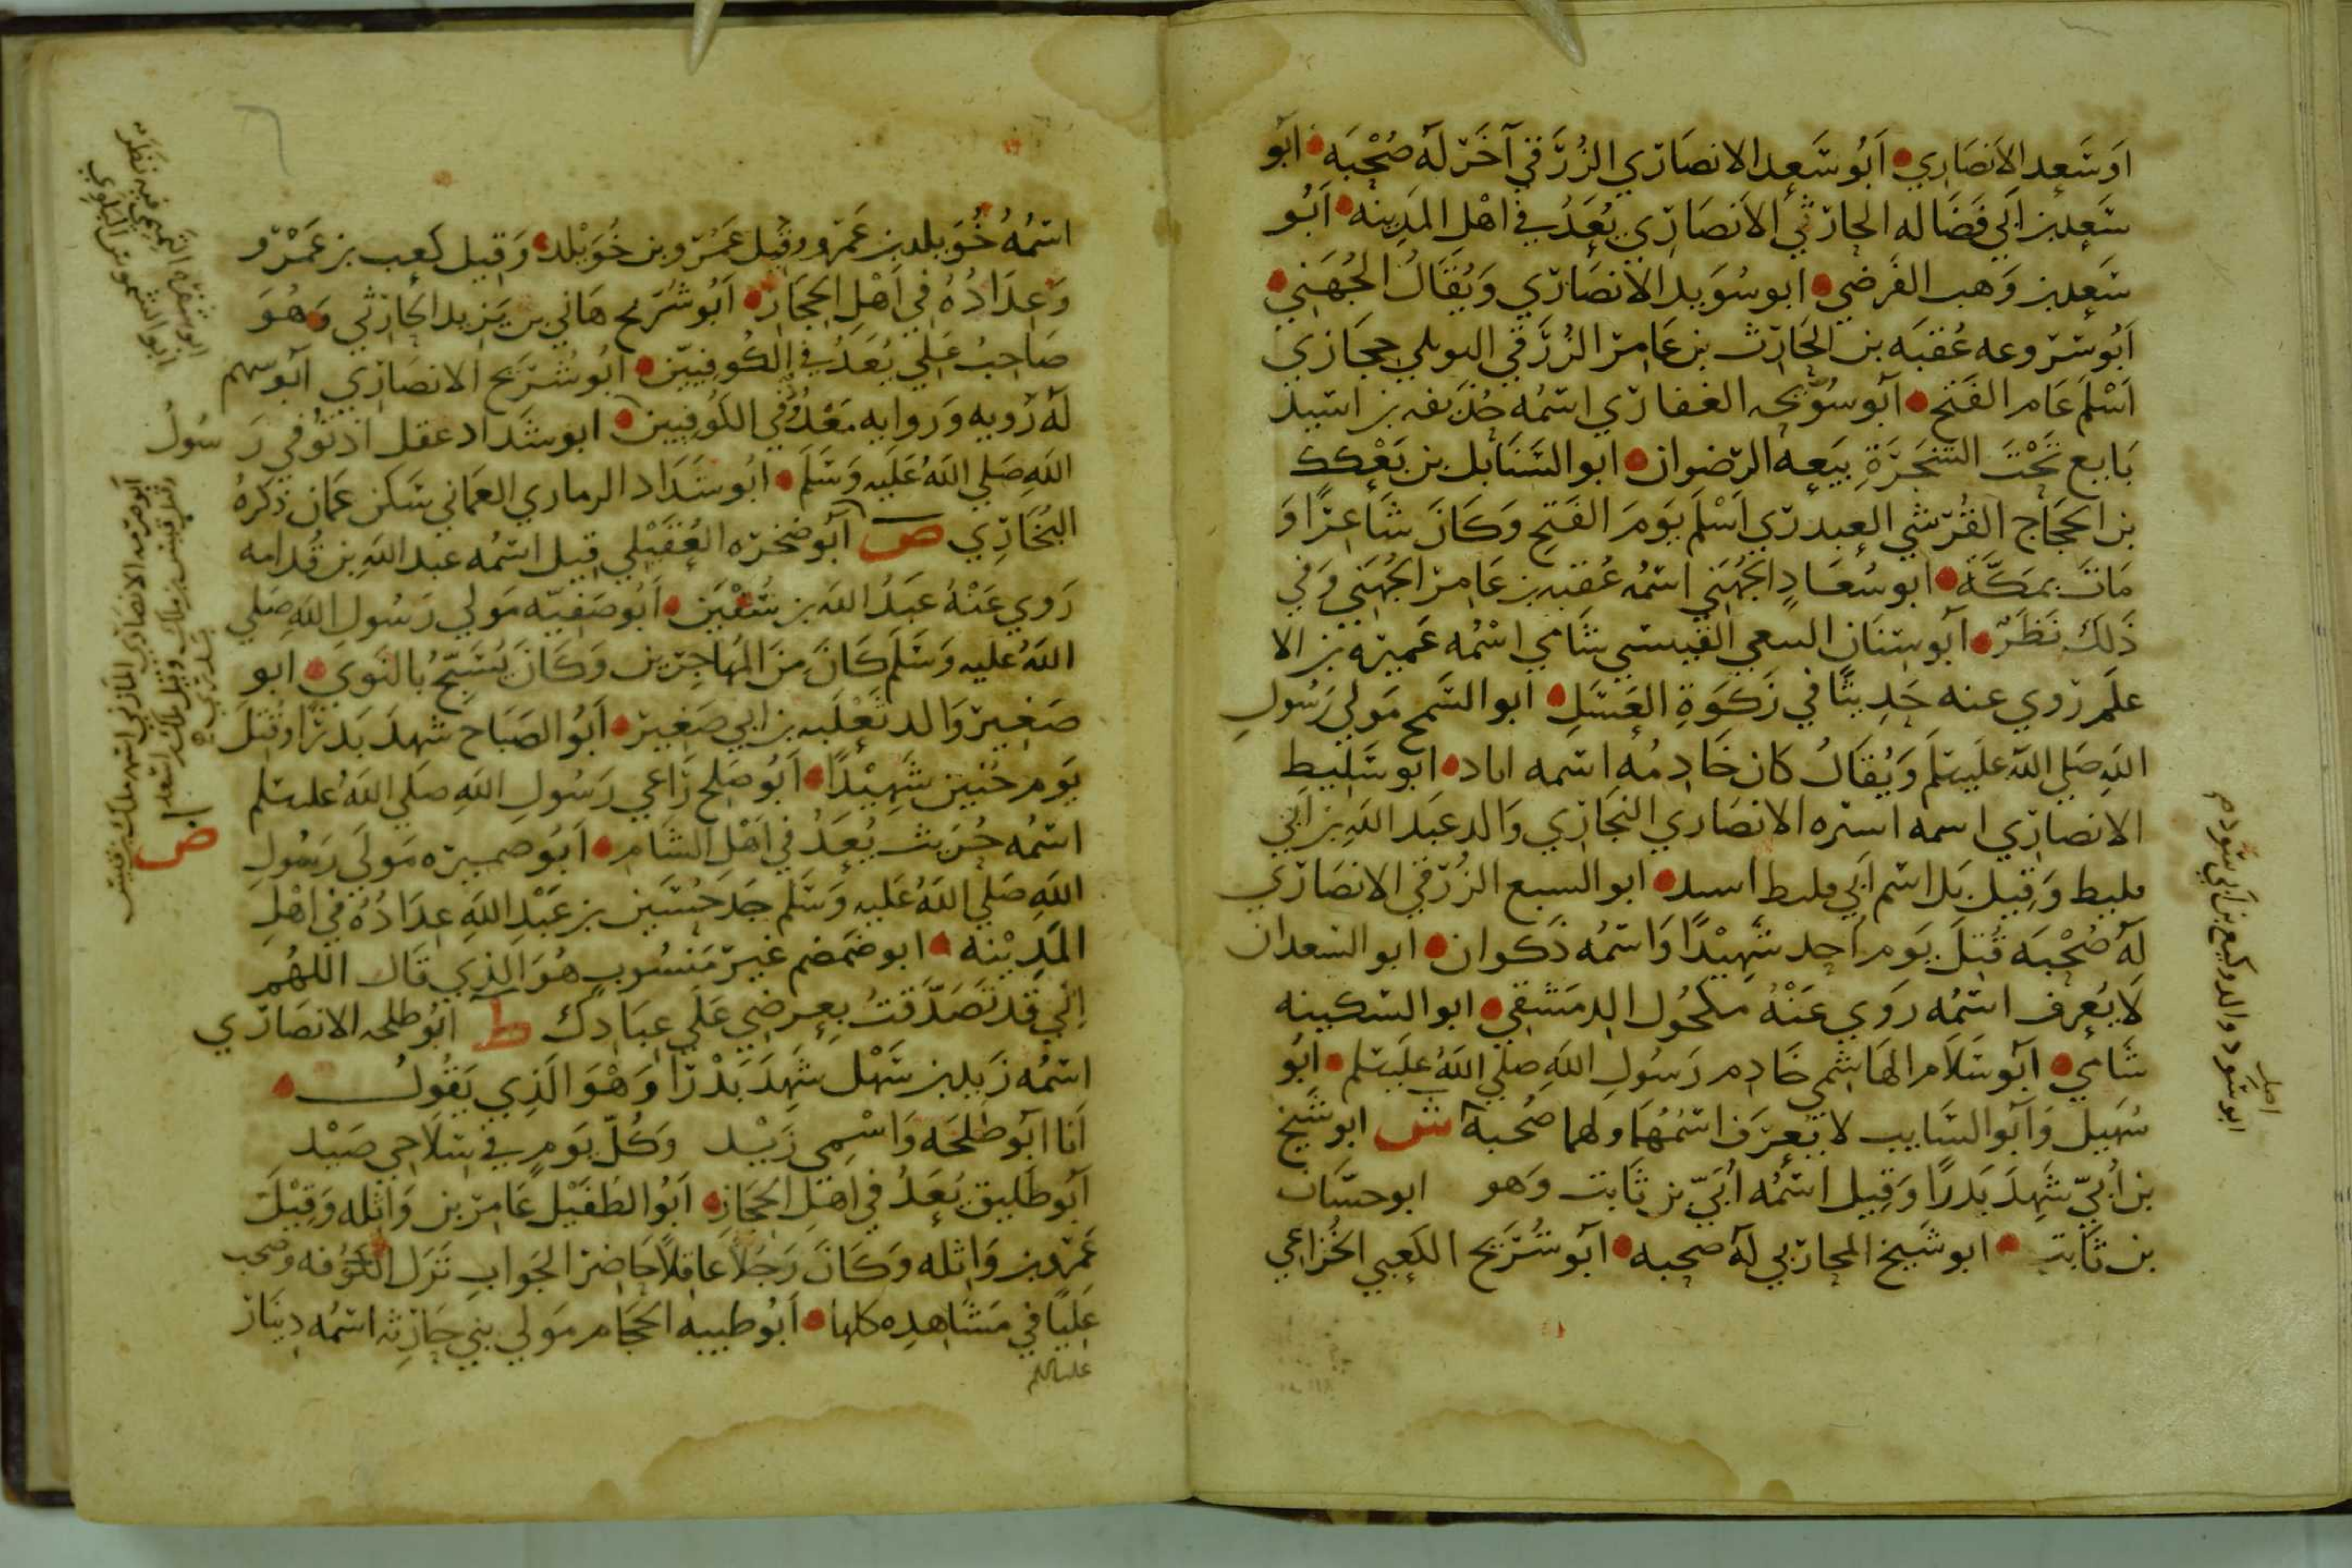 او سعد الانصاري ابو سعد الانصاري الزرقي آخر له صحبه ابو
سعد بن ابي فضاله الحارثي الانصاري يعد في اهل المدينه ابو
سعد بن وهب القرضي ابو سويد الانصاري ويقال الجهني
ابو سروعه عقبه بن الحارث بن عامر الزرقي النوفلي حجازي
اسلم عام الفتح ابو سريحه الغفاري اسمه حذيفه بن اسيد
بايع تحت الشجرة بيعه الرضوان ابو السنابل بن بعكك
بن الحجاج القرشي العبدري اسلم يوم الفتح وكان شاعرا و
مات بمكة ابو سعاد الجهني اسمه عقبه بن عامر الجهني وفي
ذلك نظر ابو سنان القيسي شامي اسمه عميره بن الا
علم روي عنه حديثا في زكوة العسل ابو السمح مولي رسول
الله صلي الله عليه سلم ويقال كان خادمه اسمه اياد ابو سليط
الانصاري اسمه اسيره الانصاري النجاري والد عبد الله بن ابي
سليط وقيل بل اسم ابي سليط اسيد ابو السبع الزرقي الانصاري
له صحبه قتل يوم احد شهيدا واسمه ذكوان ابو السعدان
لا يعرف اسمه روي عنه مكحول الدمشقي ابو السكينه
شامي ابو سلام الهاشمي خادم رسول الله صلي الله عليه سلم ابو
سهيل وابو السايب لا يعرف اسمهما ولهما صحبة ش ابو شيخ
بن ابي شهد بدرا وقيل اسمه ابي بن ثابت وهو ابو حسان
بن ثابت ابو شيخ المحاربي له صحبه ابو شريح الكعبي الخزاعي
ابو سود والد وكيع بن ابي سود م
اصل
اسمه خويلد بن عمرو وقيل عمرو بن خويلد وقيل كعب بن عمرو
وعداده في اهل الحجاز ابو شريح هاني بن يزيد الحارثي وهو
صاحب علي يعد في الكوفيين ابو شريح الانصاري ابو سهم
له رويه وروايه معد في الكوفيين ابو شداد عقل اذ توفي رسول
الله صلي الله عليه وسلم ابو شداد الرماري العماني سكن عمان ذكره
البخاري ص ابو صخره العقيلي قيل اسمه عبد الله بن قدامه
روي عنه عبد الله بن شقيق ابو صفيه مولي رسول الله صلي
الله عليه وسلم كان من المهاجرين وكان يسبح بالنوي ابو
صغير والد ثعلبه بن ابي صغير ابو الصباح شهد بدرا وقتل
يوم حنين شهيدا ابو صلح راعي رسول الله صلي الله عليه سلم
اسمه حريث يعد في اهل الشام ض ابو ضميره مولي رسول
الله صلي الله عليه وسلم جد حسين بن عبد الله عداده في اهل
المدينه ابو ضمضم غير منسوب هو الذي قال اللهم
اني قد تصدقت بعرضي علي عبادك ط ابو طلحه الانصاري
اسمه زيد بن سهل شهد بدرا وهو الذي يقول
انا ابو طلحه واسمي زيد وكل يوم في سلاحي صيد
ابو طليق يعد في اهل الحجاز ابو الطفيل عامر بن واثله وقيل
عمرو بن واثله وكان رجلا عاقلا حاضر الجواب نزل الكوفه وصحب
عليا في مشاهده كلها ابو طيبه الحجام مولي بني حارثه اسمه دينار
عليه السلم
ابو شقره التميمي فيه نظر
ابو الشموس البلوي
ابو صرمه الانصاري المازني اسمه مالك بن قيس
وقيل قيس بن مالك وقيل مالك بن اسعد